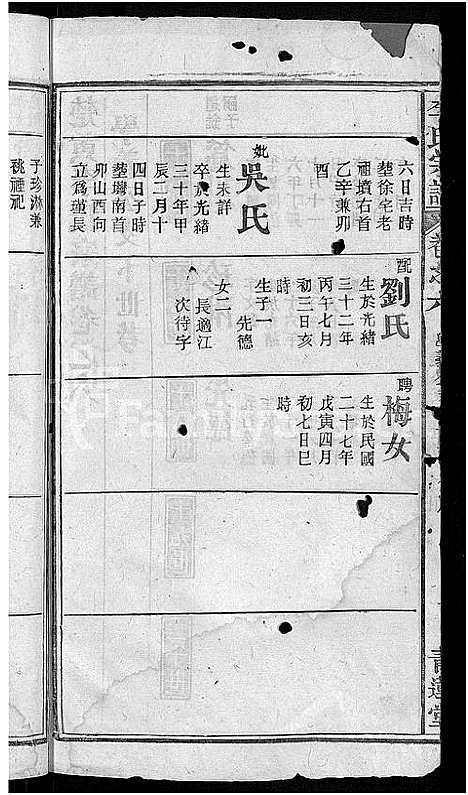 六日吉時
塟徐宅老
祖墳右首
乙辛兼卯
酉
妣吳氏
生未詳
卒於光緒
三十年甲
辰二月十
四日子時
塟墩南首
卯山酉向
立為瑾長
子珍淋兼
祧禋祀
配劉氏
生於光緒
三十二年
丙午七月
初三日亥
時
生子一
先德
女二
長適江
次待字
聘梅女
生於民國
二十七年
戊寅四月
初七日巳
時
李氏宗譜
卷之六
青蓮堂